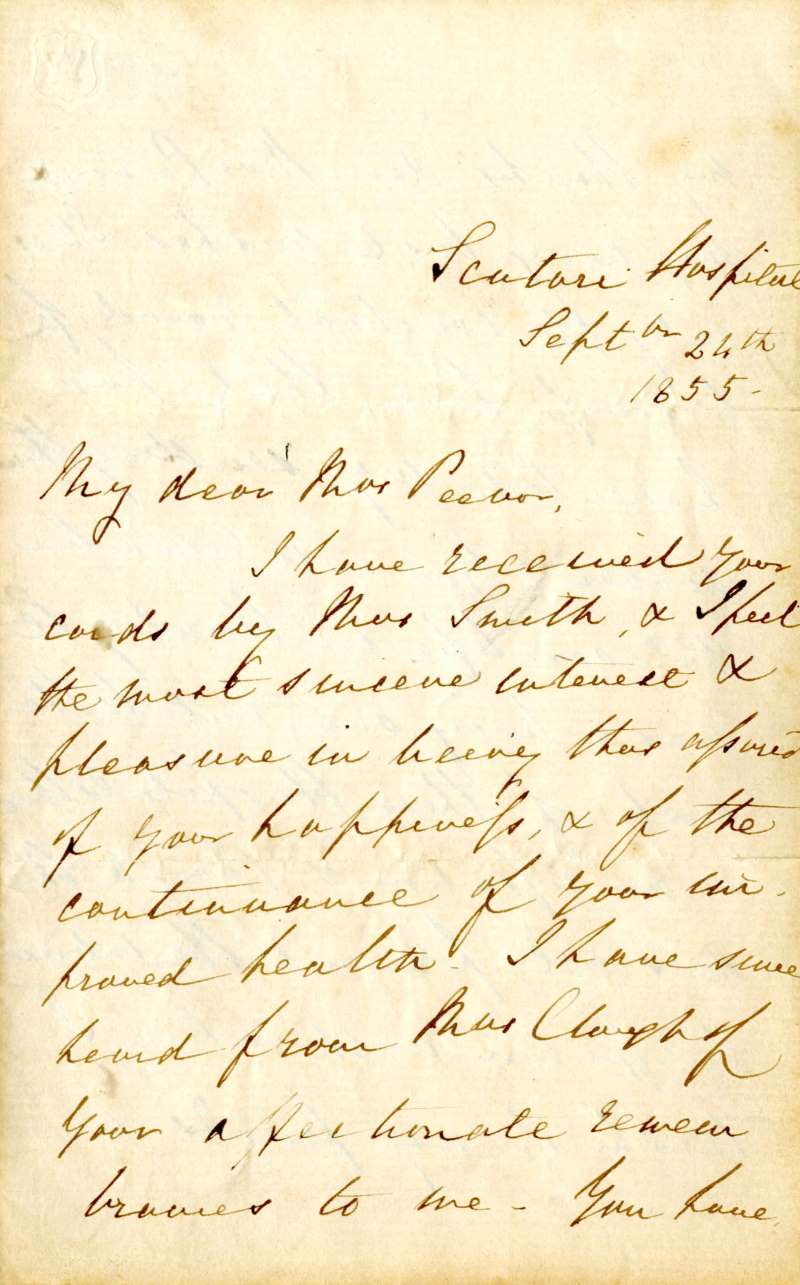 Scutari Hospital
Septbr 24th
1855-
My dear Mrs Peevor,
I have received your
cards by Mrs Smith, & I feel
the most sincere interest &
pleasure in being thus assured
of your happiness, & of the
continuance of your im-
proved health. I have since
heard from Mrs Clough of
your affectionate remem
brances to me - You have